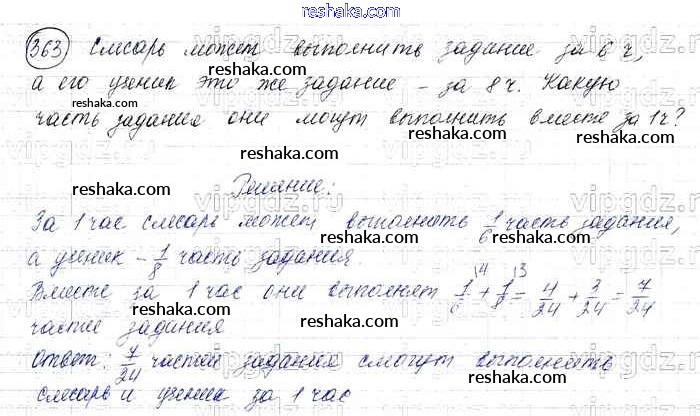 reshaka.com
363 Слесарь может выполнить задание за 6 ч,
а его ученик это же задание – за 8 ч. Какую
reshaka.com reshaka.com
часть задания они могут выполнить вместе за 1ч?
reshaka.com reshaka.com
vipgdz.ru
Решение:
reshaka.com reshaka.com
За 1 час слесарь может выполнить 1/6 часть задания,
а ученик – 1/8 часть задания
reshaka.com reshaka.com
Вместе за 1 час они выполнят 1/6 \4 + 1/8 \3 = 4/24 + 3/24 = 7/24
reshaka.com reshaka.com
части задания
Ответ: 7/24 частей задания смогут выполнить
reshaka.com reshaka.com
слесарь и ученик за 1 час
reshaka.com